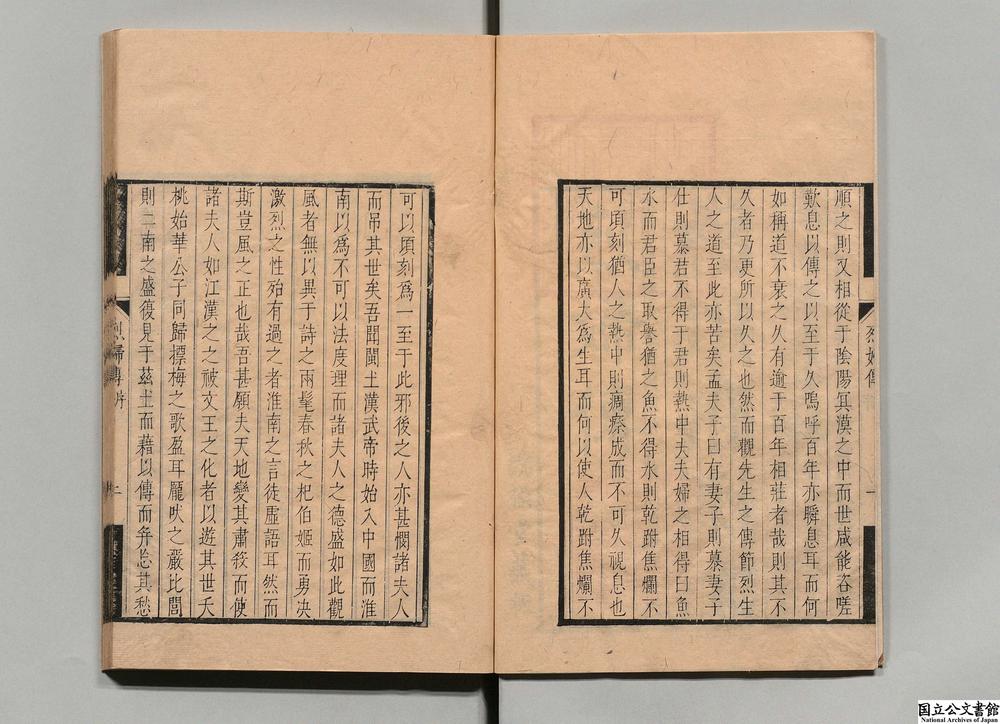 順之則又相從于陰陽冥漠之中而世咸能咨嗟
歎息以傳之以至于久嗚呼百年亦瞬息耳而何
如稱道不衰之久有逾于百年相莊者哉則其不
久者乃更所以久之也然而觀先生之傳節烈生
人之道至此亦苦矣孟夫子曰有妻子則慕妻子
仕則慕君不得于君則熱中夫夫婦之相得曰魚
水而君臣之取譽猶之魚不得水則乾跗焦爛不
可頃刻猶人之熱中則痟瘵成而不可久視息也
天地亦以廣大為生耳而何以使人乾跗焦爛不
可以頃刻為一至于此邪後之人亦甚憫諸夫人
而吊其世矣吾聞閩土漢武帝時始入中國而淮
南以為不可以法度理而諸夫人之德盛如此觀
風者無以異于詩之兩髦春秋之杞伯姬而勇决
激烈之性殆有過之者淮南之言徒虛語耳然而
斯豈風之正也哉吾甚願夫天地變其肅殺而使
諸夫人如江漢之之被文王之化者以遊其世夭
桃始華公子同歸摽梅之歌盈耳厖吠之嚴比閭
則二南之盛復見于茲土而藉以傳而弁忘其愁
烈婦傳
一
烈婦傳序
二
国立公文書館
National Archives of Japan